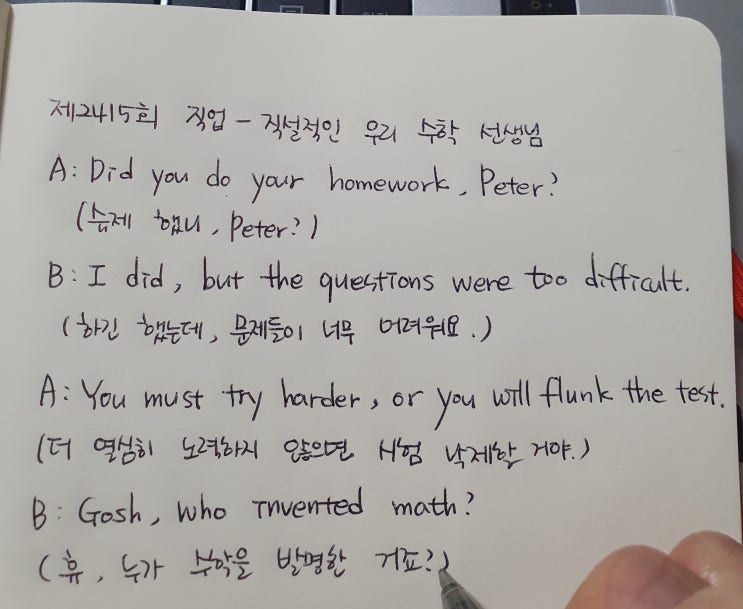 제2415회 직업 - 직설적인 우리 수학 선생님
A: Did you do your homework, Peter?
(숙제 했니, Peter?)
B: I did, but the questions were too difficult.
(하긴 했는데, 문제들이 너무 어려워요.)
A: You must try harder, or you will flunk the test.
(더 열심히 노력하지 않으면 시험 낙제할 거야.)
B: Gosh, who invented math?
(휴, 누가 수학을 발명한 거죠?)